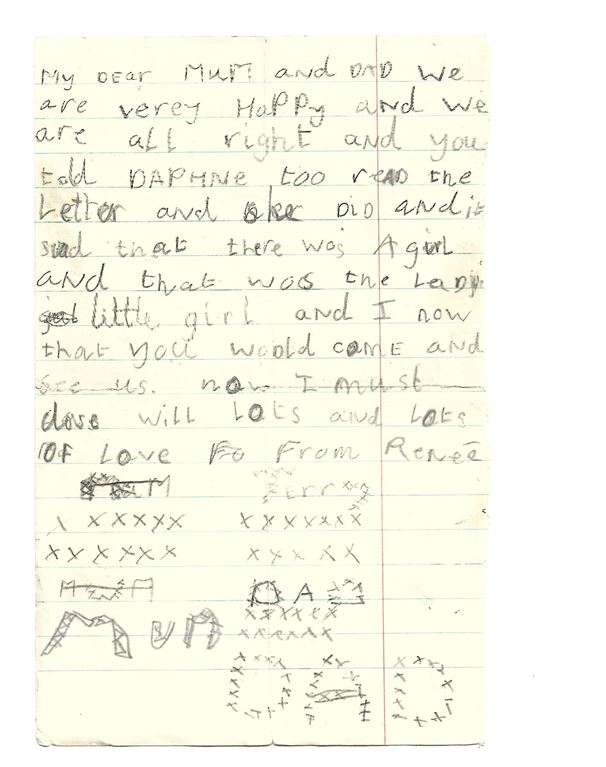 My DEar MuM and DAD We
are verey HaPPy and we
are all right and you
told DAPHNe too reAD the
Letter and she DiD and it
siad that there was A girl
and that was the LaDy
little girl and I now
that you woold come and
see us. now I must
close will Lots and Lots
OF Love From Renée
X XXXXX XXXXXXX
XXXXXX XXXXX
DAD
XXXXXX
MUM XXXXXX